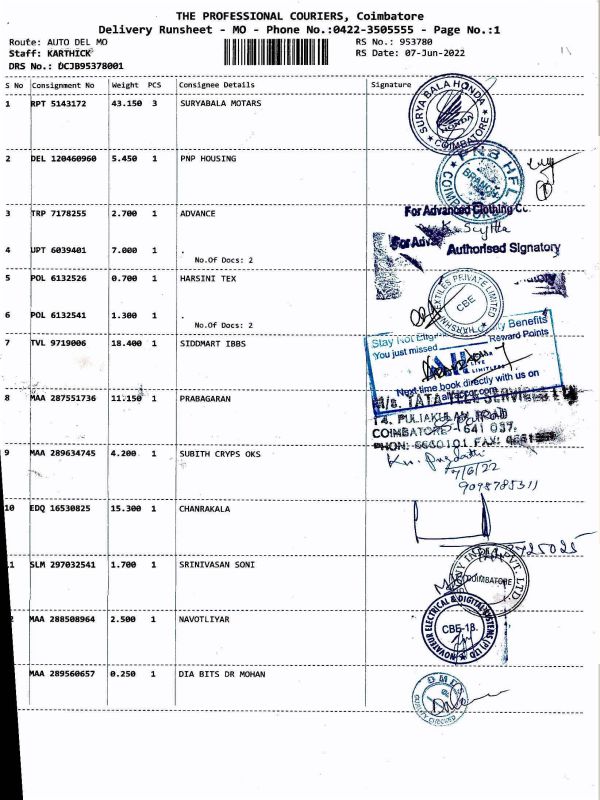 THE PROFESSIONAL COURIERS, Coimbatore
Delivery Runsheet - MO - Phone No.:0422-3505555 - Page No.:1
Route: AUTO DEL MO RS No.: 953780
Staff: KARTHICK RS Date: 07-Jun-2022
DRS No.: DCJB95378001
S No Consignment No Weight PCS Consignee Details Signature
1 RPT 5143172 43.150 3 SURYABALA MOTARS
SURYA BALA HONDA
HONDA
COIMBATORE
2 DEL 120460960 5.450 1 PNP HOUSING
PNB HFL
BRANCH
3 TRP 7178255 2.700 1 ADVANCE
For Advanced Clothing Co.
4 UPT 6039401 7.000 1 .
No.Of Docs: 2
For Adva
Authorised Signatory
5 POL 6132526 0.700 1 HARSINI TEX
TEXTILES PRIVATE LIMITED
CBE
6 POL 6132541 1.300 1 .
No.Of Docs: 2
7 TVL 9719006 18.400 1 SIDDMART IBBS
Stay Not y Benefits
You just missed Reward Points
LIVE
LIMITLESS
Next time book directly with us on
8 MAA 287551736 11.150 1 PRABAGARAN
M/s. TATA TELE SERVICES LTD
14, PULIAKULAM ROAD
COIMBATORE - 641 037.
PHON: 6660101 FAX:
9 MAA 289634745 4.200 1 SUBITH CRYPS OKS
7/6/22
10 EDQ 16530825 15.300 1 CHANRAKALA
1 SLM 297032541 1.700 1 SRINIVASAN SONI
SONY INDIA PVT. LTD.
COIMBATORE
2 MAA 288508964 2.500 1 NAVOTLIYAR
NOVATEUR ELECTRICAL & DIGITAL SYSTEMS (P) LTD
CBE-18.
MAA 289560657 0.250 1 DIA BITS DR MOHAN
QUALITY CHECKED